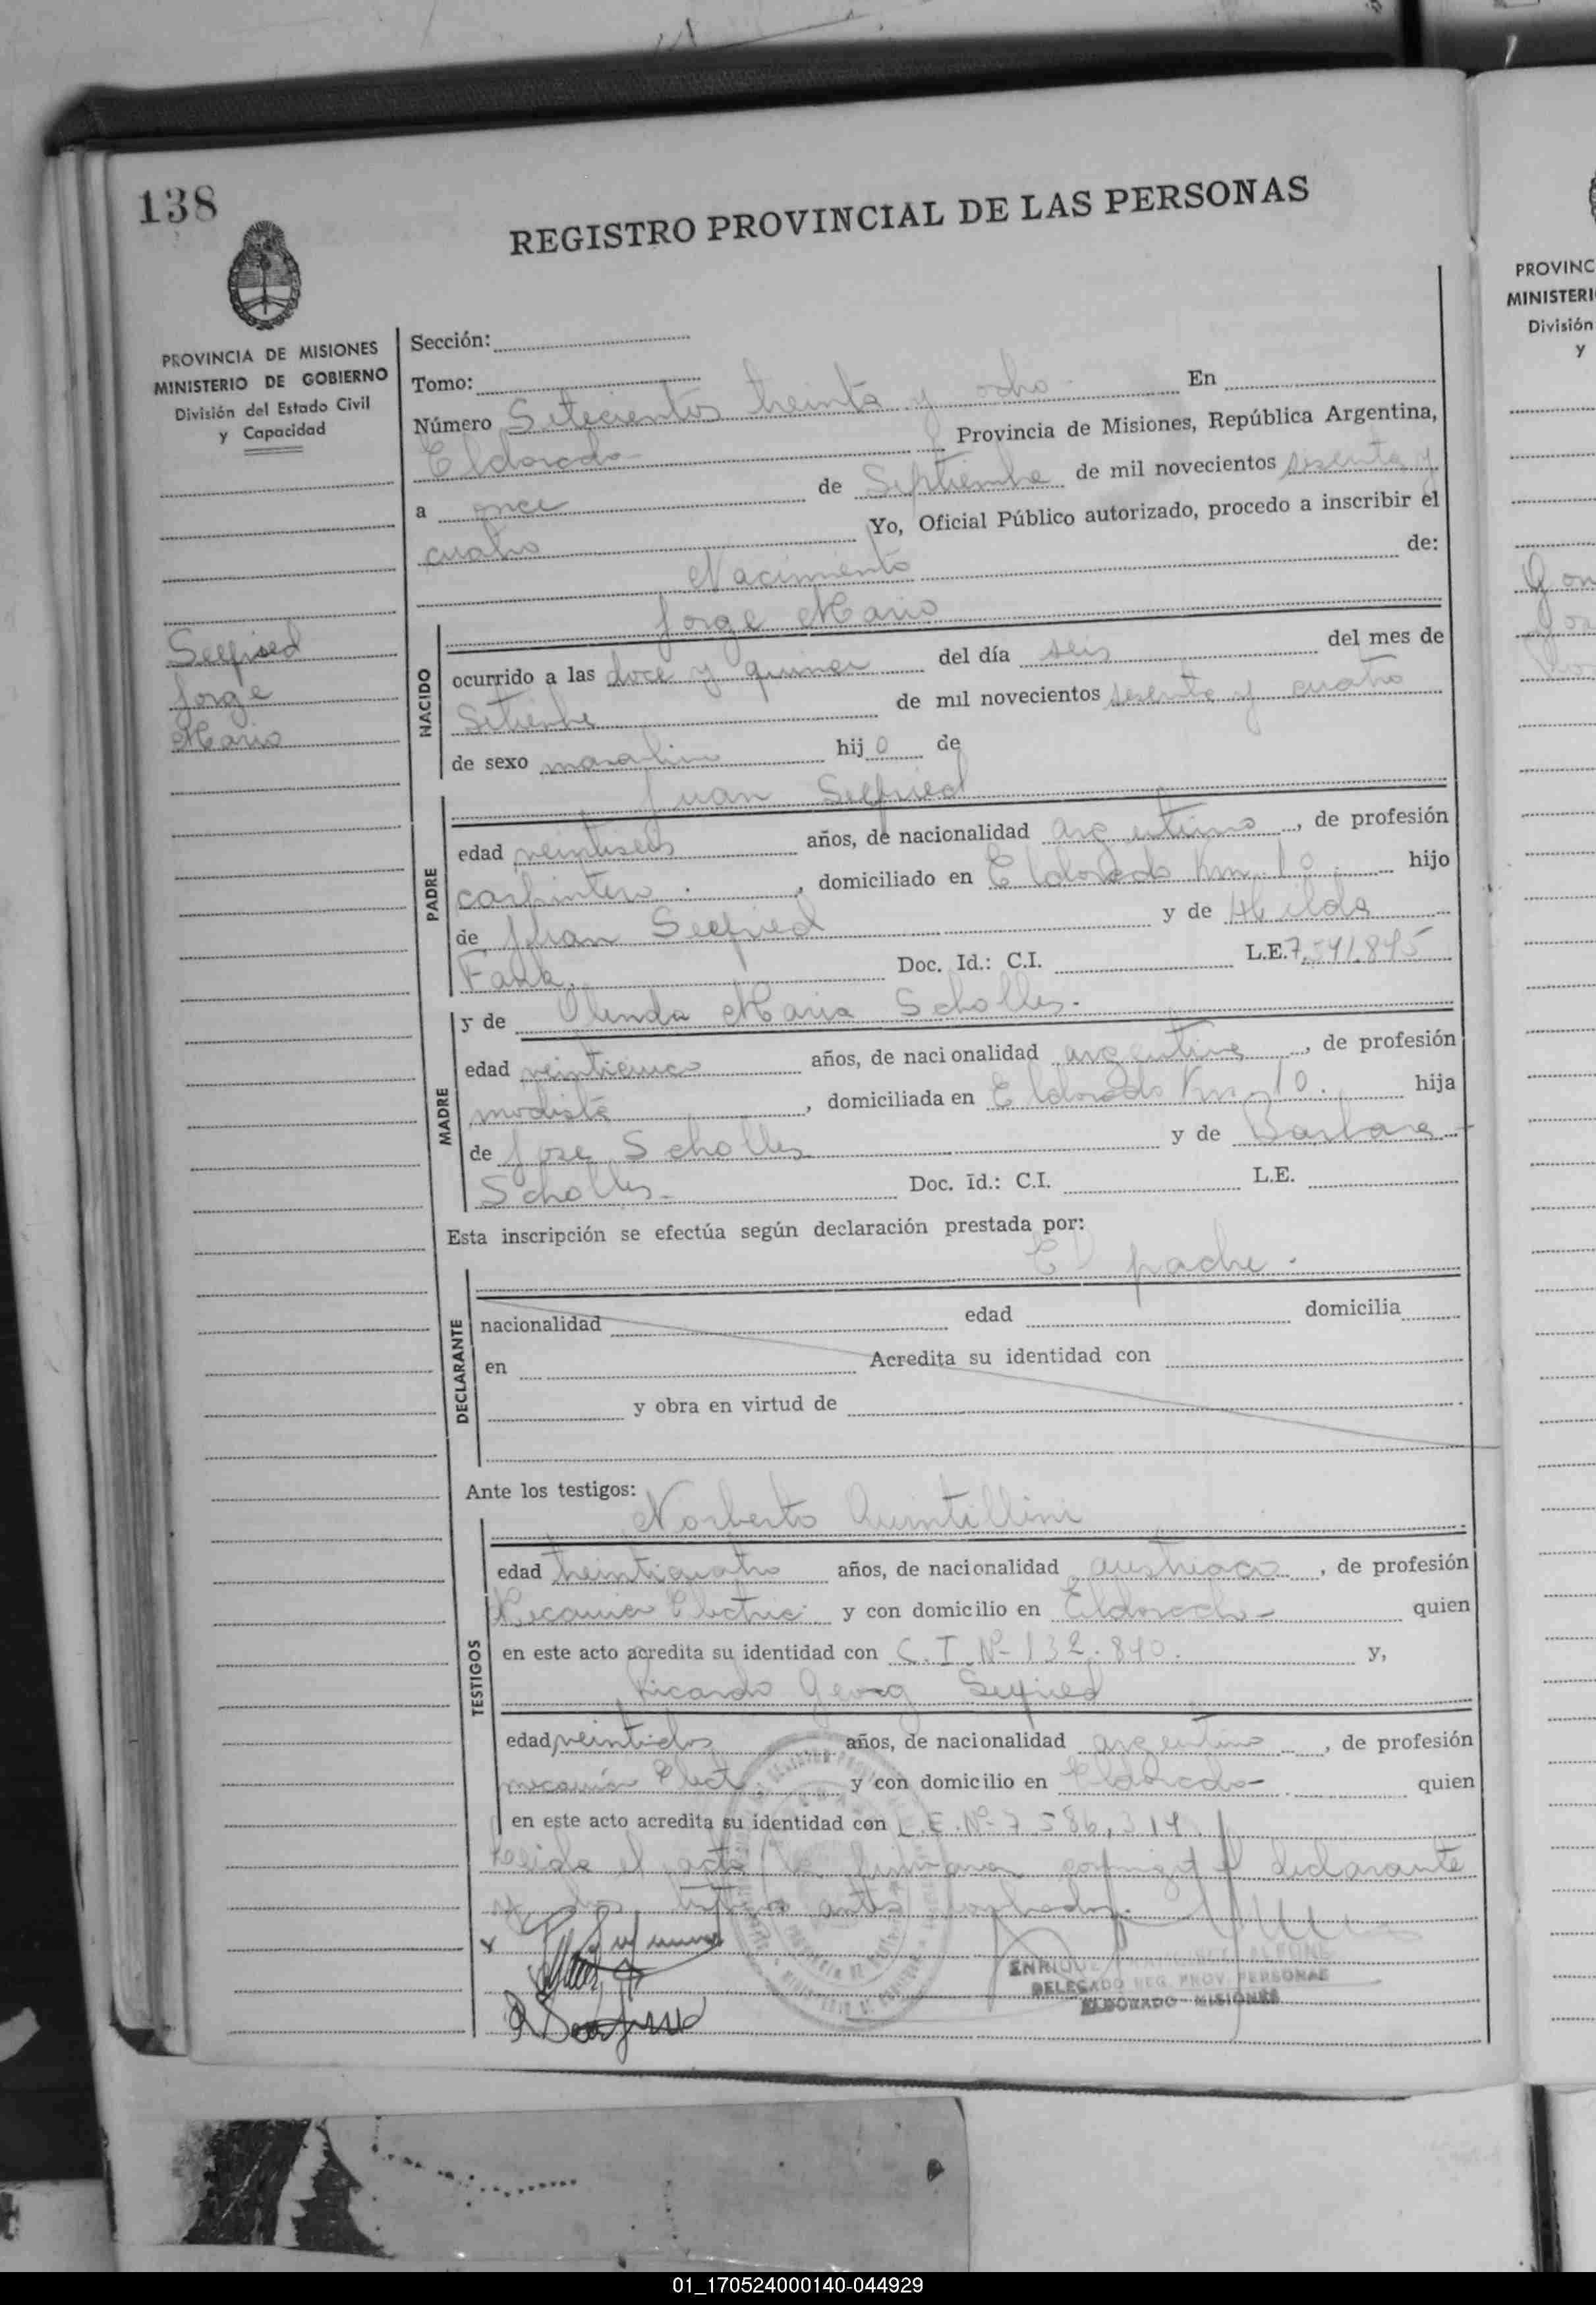 138
REGISTRO PROVINCIAL DE LAS PERSONAS
PROVINCIA DE MISIONES
MINISTERIO DE GOBIERNO
División del Estado Civil
y Capacidad
Sección:
Tomo:
Número Setecientos treinta y ocho En
Eldorado Provincia de Misiones, República Argentina,
a once de Septiembre de mil novecientos sesenta y
cuatro Yo, Oficial Público autorizado, procedo a inscribir el
Nacimiento de:
Jorge Mario
Seefried
Jorge
Mario
NACIDO
ocurrido a las doce y quince del día seis del mes de
Setiembre de mil novecientos sesenta y cuatro
de sexo masculino hijo de
PADRE
Juan Seefried
edad veintiseis años, de nacionalidad argentino, de profesión
carpintero, domiciliado en Eldorado Km. 10 hijo
de Juan Seefried y de Hilda
Doc. Id.: C.I. L.E. 7.541.845
MADRE
y de Olinda Maria Scholles.
edad veinticinco años, de nacionalidad argentina, de profesión
modista, domiciliada en Eldorado Km. 10. hija
de Jose Scholles y de Barbara
Scholles- Doc. Id.: C.I. L.E.
Esta inscripción se efectúa según declaración prestada por:
El padre.
DECLARANTE
nacionalidad edad domicilia
en Acredita su identidad con
y obra en virtud de
Ante los testigos:
TESTIGOS
Norberto Quintillini
edad treinticuatro años, de nacionalidad austriaco, de profesión
Mecanico Electric. y con domicilio en Eldorado- quien
en este acto acredita su identidad con C.I. Nº 132.840. y,
Ricardo Georg Seefried
edad veintidos años, de nacionalidad argentino, de profesión
mecanico Elect. y con domicilio en Eldorado- quien
en este acto acredita su identidad con L.E. Nº 7.586.314.
Leida el acta la firman conmigo el declarante
y los testigos antes nombrados.
ENRIQUE
DELEGADO REG. PROV. PERSONAS
ELDORADO - MISIONES
PROVINC
MINISTERI
División
y
01_170524000140-044929